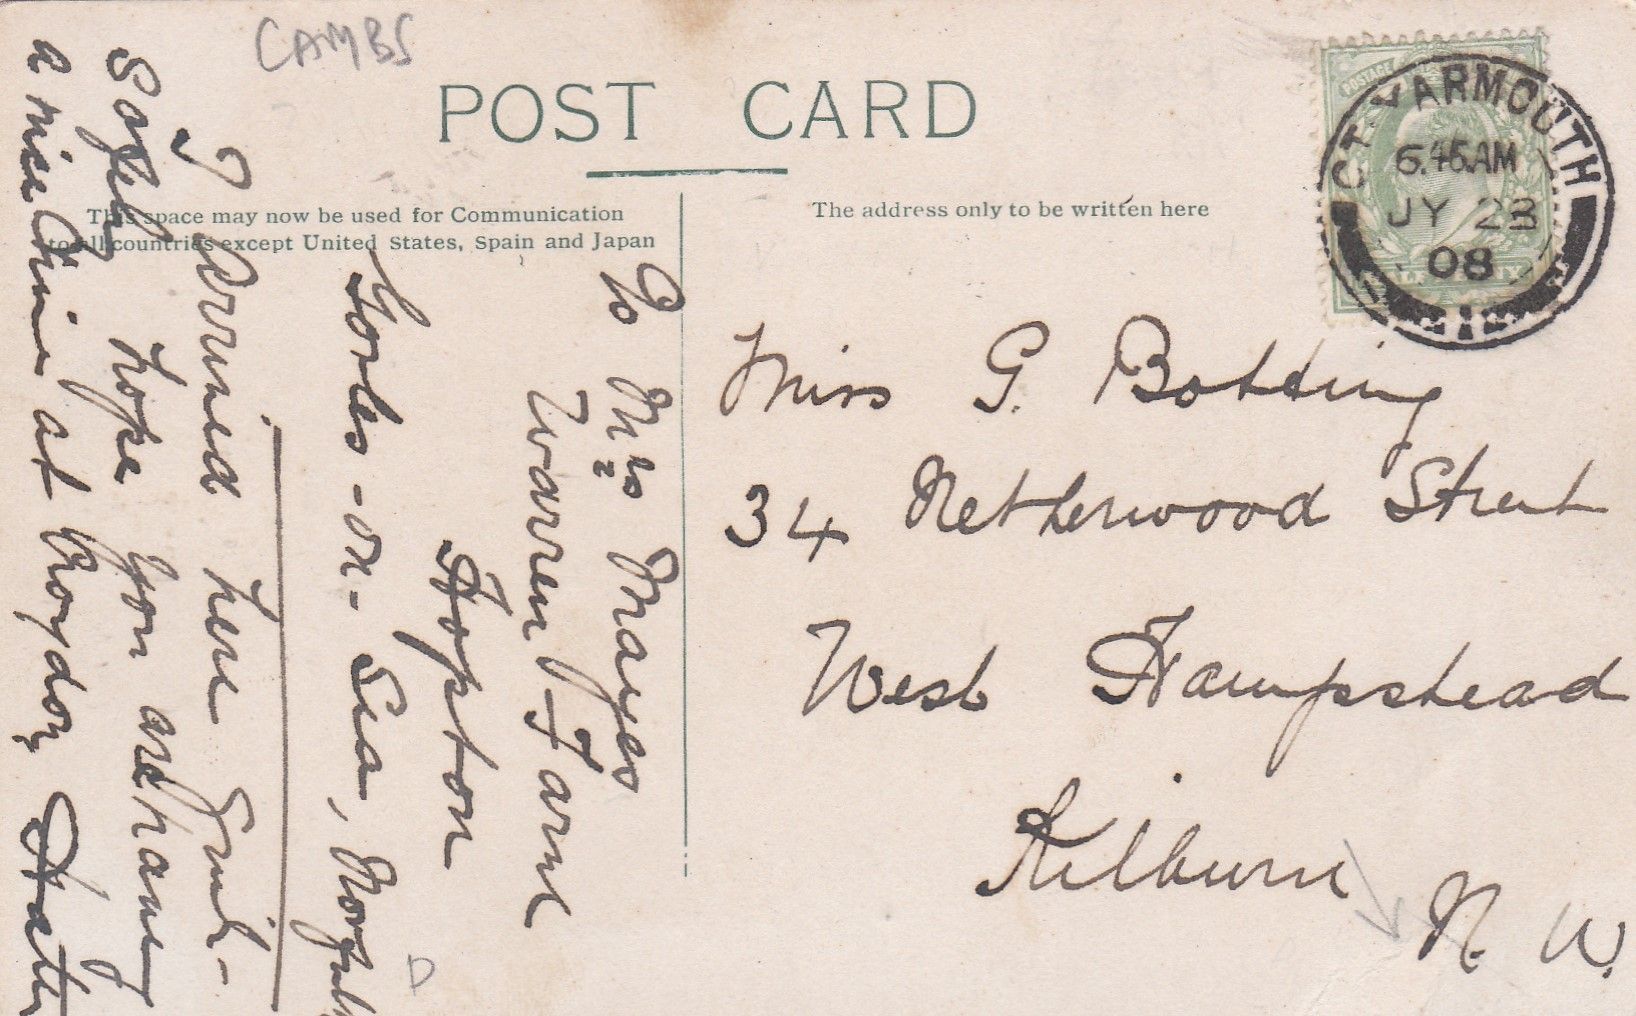 CAMBS
POST CARD
This space may now be used for Communication
to all countries except United States, Spain and Japan
The address only to be written here
GT YARMOUTH
6.45.AM
JY 23
08
Miss G. Botting
34 Netherwood Street
West Hampstead
Kilburn
N. W.
To Mrs Mayes
Warren Farm
Hopton
Gorles-on-Sea, Norfolk
I arrived here
safely hope you are having
a nice time at Croydon
D